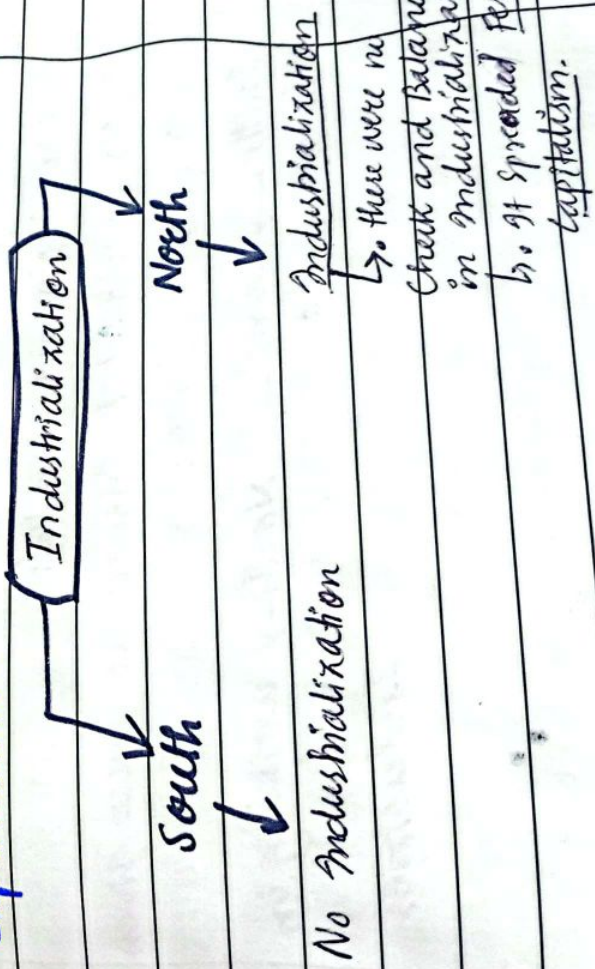 Industrialization
South North
No Industrialization Industrialization
there were
Check and Balan
in Industrializa
It Spreaded
Capitalism.